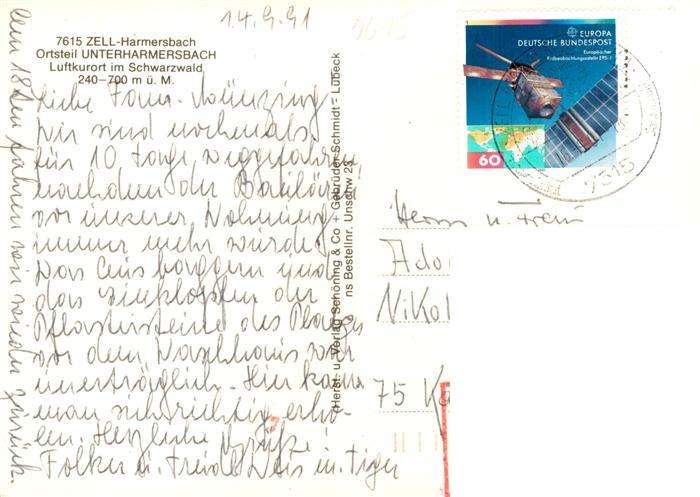 14.9.91
7615 ZELL-Harmersbach
Ortsteil UNTERHARMERSBACH
Luftkurort im Schwarzwald
240–700 m ü. M.
Liebe Fam. Münzing
Wir sind nochmals
für 10 Tage weggefahren
nachdem der Baulärm
vor unserer Wohnung
immer mehr wurde.
Das Ausbaggern und
das einklopfen der
Pflastersteine des Platzes
vor dem Waschhaus war
unerträglich. Hier kann
man sich richtig erho-
len. Herzliche Grüße!
Folker u. Friedel Weis m. Tiger
Am 18ten fahren wir wieder zurück.
Herst. u. Verlag Schöning & Co + Gebrüder Schmidt - Lübeck
ns Bestellnr. Unschw 28
EUROPA
DEUTSCHE BUNDESPOST
Europäischer
Erdbeobachtungssatellit ERS-1
60
7615
Herrn u. Frau
Ado
Nikol
75 Ka